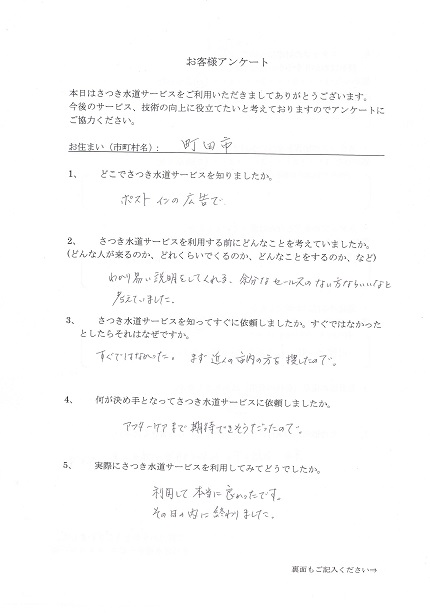 お客様アンケート
本日はさつき水道サービスをご利用いただきましてありがとうございます。
今後のサービス、技術の向上に役立てたいと考えておりますのでアンケートに
ご協力ください。
お住まい（市町村名）： 町田市
1、 どこでさつき水道サービスを知りましたか。
ポストインの広告で
2、 さつき水道サービスを利用する前にどんなことを考えていましたか。
(どんな人が来るのか、どれくらいでくるのか、どんなことをするのか、など)
わかり易い説明をしてくれる、余分なセールスのない方ならいいなと
考えていました。
3、 さつき水道サービスを知ってすぐに依頼しましたか。すぐではなかった
としたらそれはなぜですか。
すぐではなかった。 まず近くの市内の方を捜したので。
4、 何が決め手となってさつき水道サービスに依頼しましたか。
アフターケアまで期待できそうだったので。
5、 実際にさつき水道サービスを利用してみてどうでしたか。
利用して本当に良かったです。
その日の内に終わりました。
裏面もご記入ください→